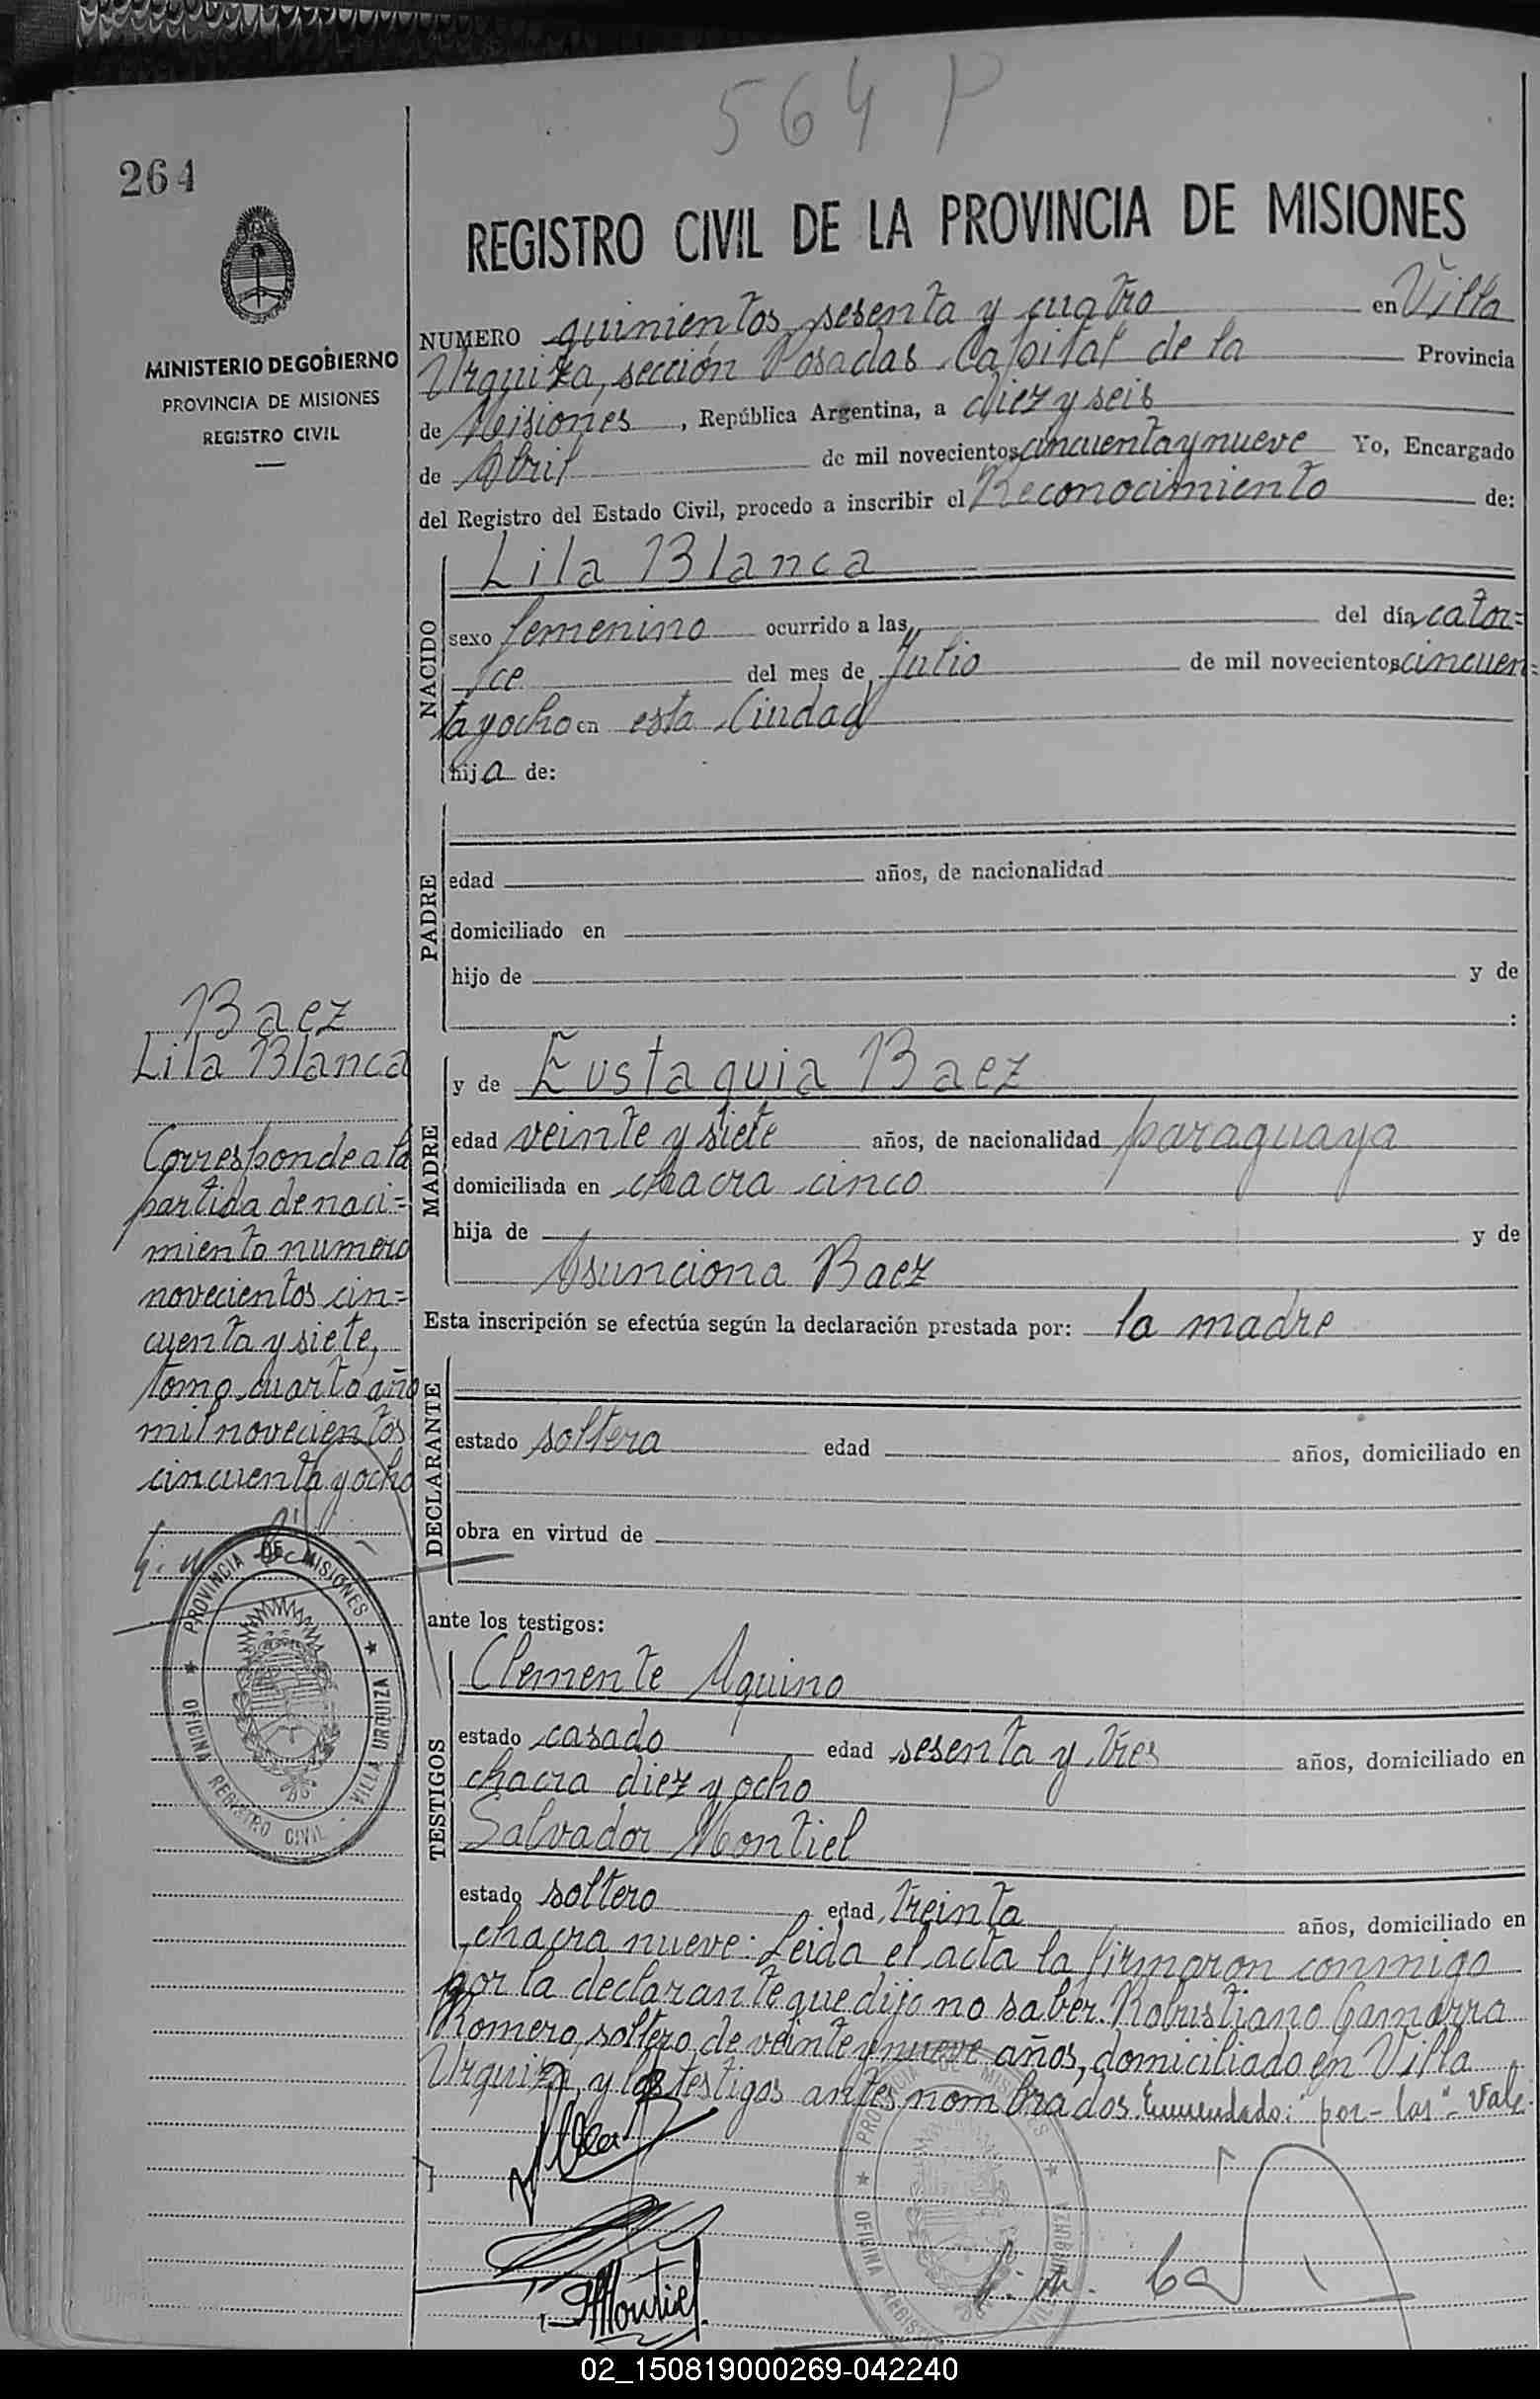 564 P
264
REGISTRO CIVIL DE LA PROVINCIA DE MISIONES
MINISTERIO DE GOBIERNO
PROVINCIA DE MISIONES
REGISTRO CIVIL
NUMERO quinientos sesenta y cuatro en Villa
Urquiza, sección Posadas Capital de la Provincia
de Misiones, República Argentina, a diez y seis
de Abril de mil novecientos cincuenta y nueve Yo, Encargado
del Registro del Estado Civil, procedo a inscribir el Reconocimiento de:
NACIDO
Lila Blanca
sexo femenino ocurrido a las del día cator=
ce del mes de Julio de mil novecientos cincuen=
ta y ocho en esta Ciudad
hija de:
PADRE
edad años, de nacionalidad
domiciliado en
hijo de y de
:
Baez
Lila Blanca
Corresponde a la
partida de naci=
miento numero
novecientos cin=
cuenta y siete,
tomo cuarto año
mil novecientos
cincuenta y ocho
PROVINCIA DE MISIONES
OFICINA REGISTRO CIVIL - VILLA URQUIZA
MADRE
y de Eustaquia Baez
edad veinte y siete años, de nacionalidad paraguaya
domiciliada en chacra cinco
hija de y de
Asunciona Baez
Esta inscripción se efectúa según la declaración prestada por: la madre
DECLARANTE
estado soltera edad años, domiciliado en
obra en virtud de
ante los testigos:
TESTIGOS
Clemente Aquino
estado casado edad sesenta y tres años, domiciliado en
chacra diez y ocho
Salvador Montiel
estado soltero edad treinta años, domiciliado en
chacra nueve: Leida el acta la firmaron conmigo
por la declarante que dijo no saber. Robustiano Gamarra
Romero, soltero, de veinte y nueve años, domiciliado en Villa
Urquiza, y los testigos antes nombrados. Enmendado: "por - los" - Vale
PROVINCIA DE MISIONES
OFICINA REGISTRO VILLA URQUIZA
Montiel
02_150819000269-042240